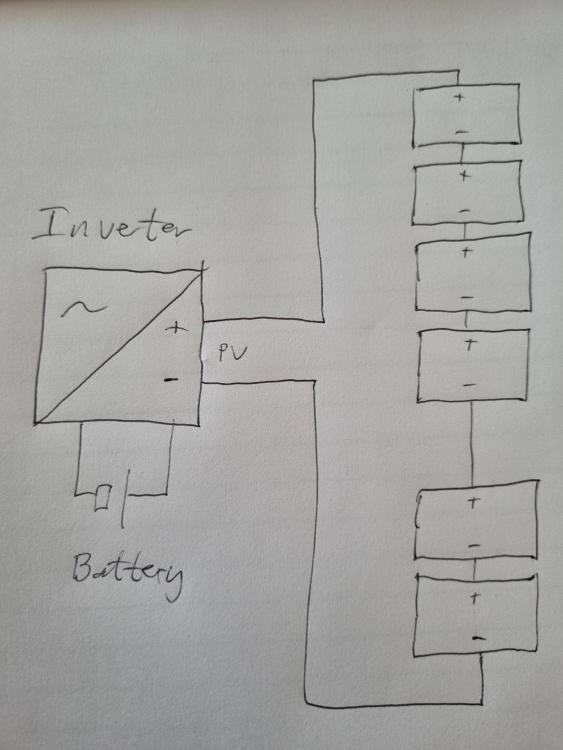 Inverter
~
+
-
PV
Battery
+
-
+
-
+
-
+
-
+
-
+
-